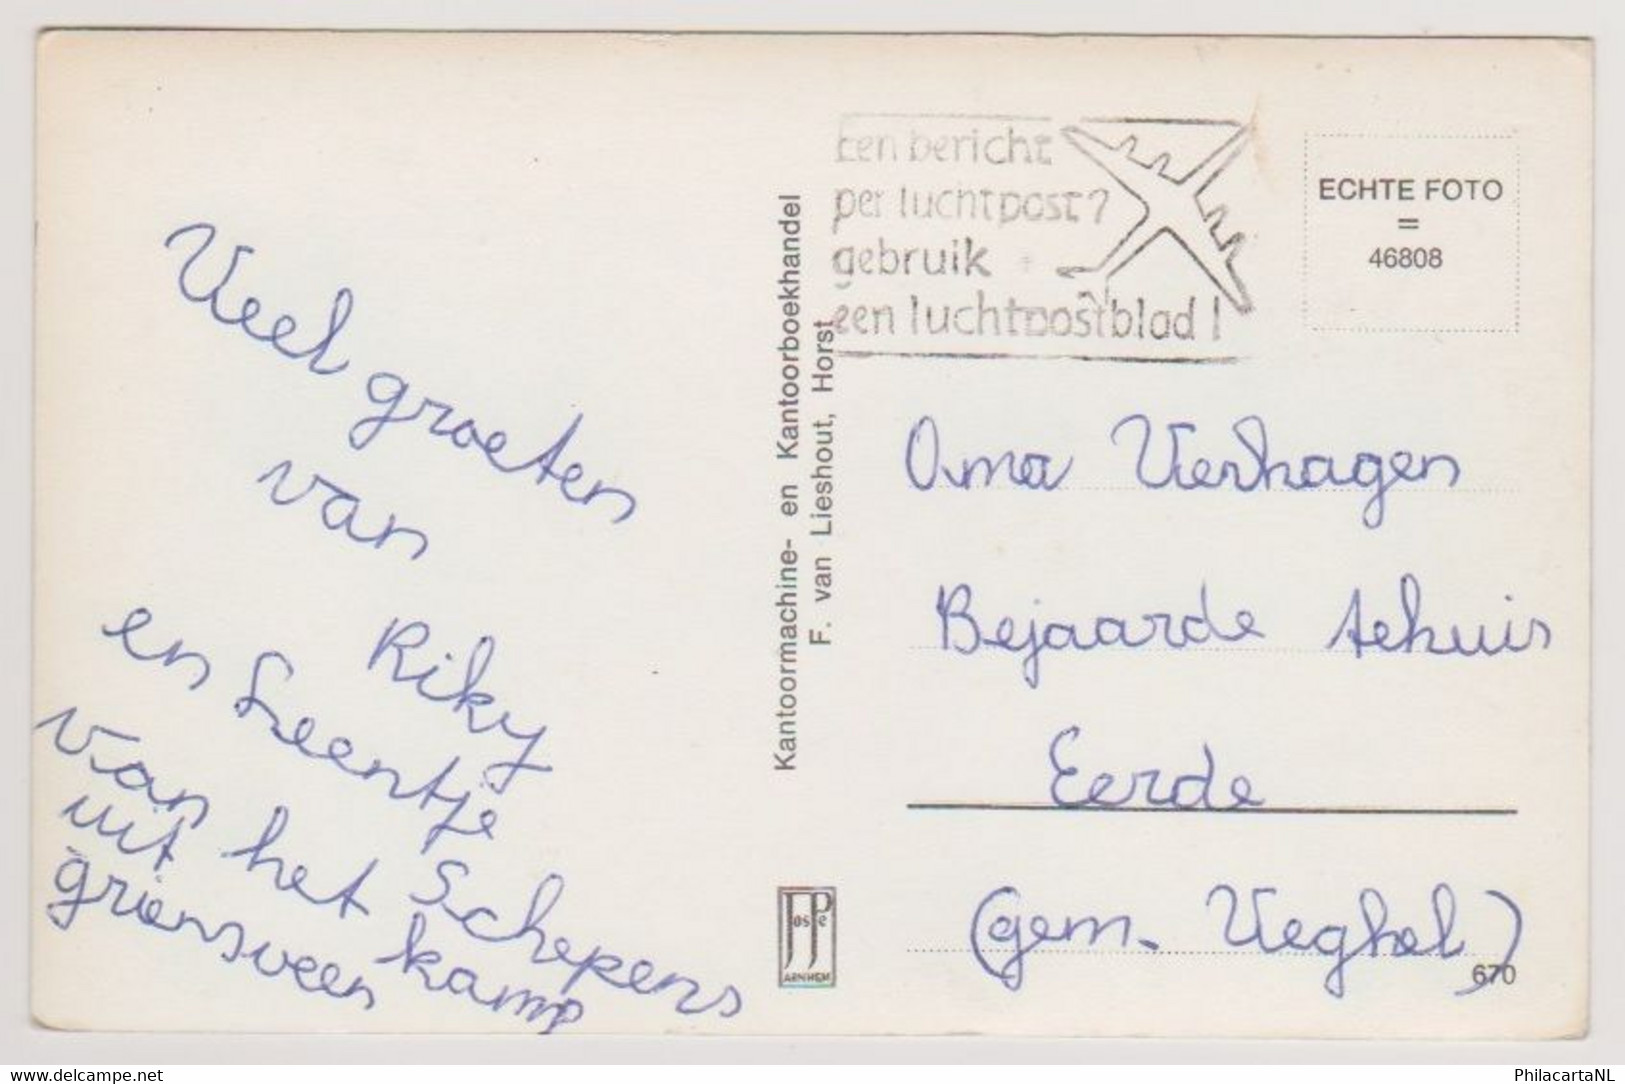 Veel groeten
van
Riky
en Leentje
van Schepens
uit het kamp
griensveen
Kantoormachine- en Kantoorboekhandel
F. van Lieshout, Horst
Een bericht
per luchtpost?
gebruik
een luchtpostblad!
ECHTE FOTO
=
46808
Oma Verhagen
Bejaarde tehuis
Eerde
(gem. Veghel)
670
JosPe
ARNHEM
www.delcampe.net
PhilacartaNL